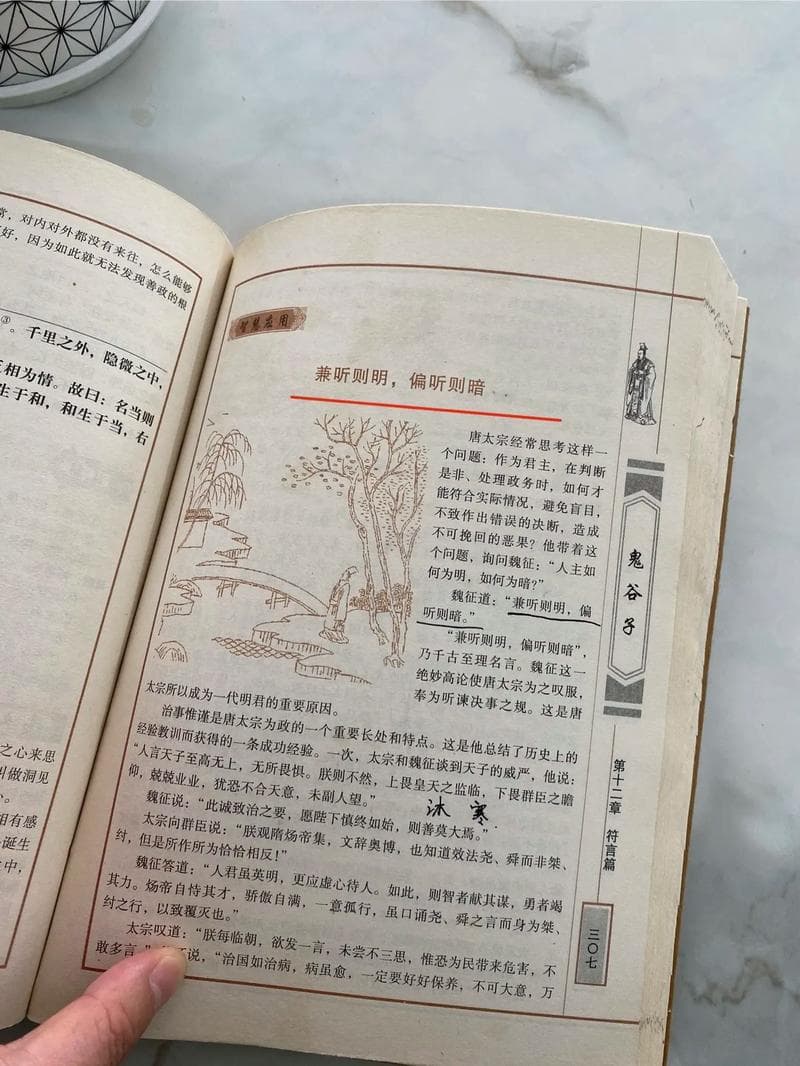 常，对内对外都没有来往，怎么能够
好，因为如此就无法发现善政的根
③。千里之外，隐微之中，
互相为情。故曰：名当则
生于和，和生于当，右
之心来思
叫做洞见
相有感
诞生
之中，
智慧应用
兼听则明，偏听则暗
唐太宗经常思考这样一
个问题：作为君主，在判断
是非、处理政务时，如何才
能符合实际情况，避免盲目，
不致作出错误的决断，造成
不可挽回的恶果？他带着这
个问题，询问魏征：“人主如
何为明，如何为暗？”
魏征道：“兼听则明，偏
听则暗。”
“兼听则明，偏听则暗”，
乃千古至理名言。魏征这一
绝妙高论使唐太宗为之叹服，
奉为听谏决事之规。这是唐
太宗所以成为一代明君的重要原因。
治事惟谨是唐太宗为政的一个重要长处和特点。这是他总结了历史上的
经验教训而获得的一条成功经验。一次，太宗和魏征谈到天子的威严，他说：
“人言天子至高无上，无所畏惧。朕则不然，上畏皇天之监临，下畏群臣之瞻
仰，兢兢业业，犹恐不合天意，未副人望。”
沐寒
魏征说：“此诚致治之要，愿陛下慎终如始，则善莫大焉。”
太宗向群臣说：“朕观隋炀帝集，文辞奥博，也知道效法尧、舜而非桀、
纣，但是所作所为恰恰相反！”
魏征答道：“人君虽英明，更应虚心待人。如此，则智者献其谋，勇者竭
其力。炀帝自恃其才，骄傲自满，一意孤行，虽口诵尧、舜之言而身为桀、
纣之行，以致覆灭也。”
太宗叹道：“朕每临朝，欲发一言，未尝不三思，惟恐为民带来危害，不
敢多言。”说，“治国如治病，病虽愈，一定要好好保养，不可大意，万
鬼谷子
第十二章 符言篇
三〇七